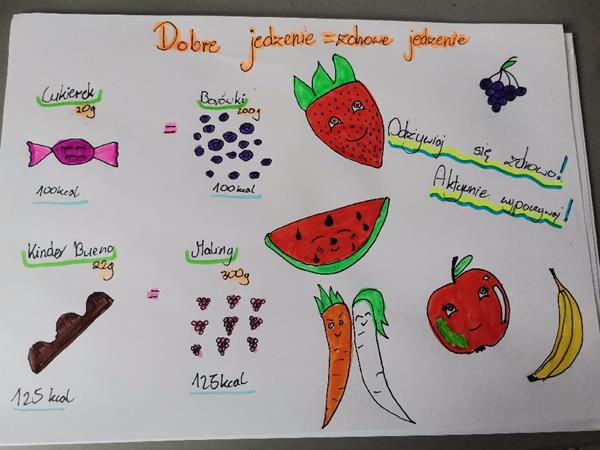 Dobre jedzenie = zdrowe jedzenie
Cukierek
20g
=
Borówki
200g
100kcal
100kcal
Odżywiaj się zdrowo!
Aktywnie wypoczywaj!
Kinder Bueno
22g
=
Maliny
300g
125 kcal
125kcal